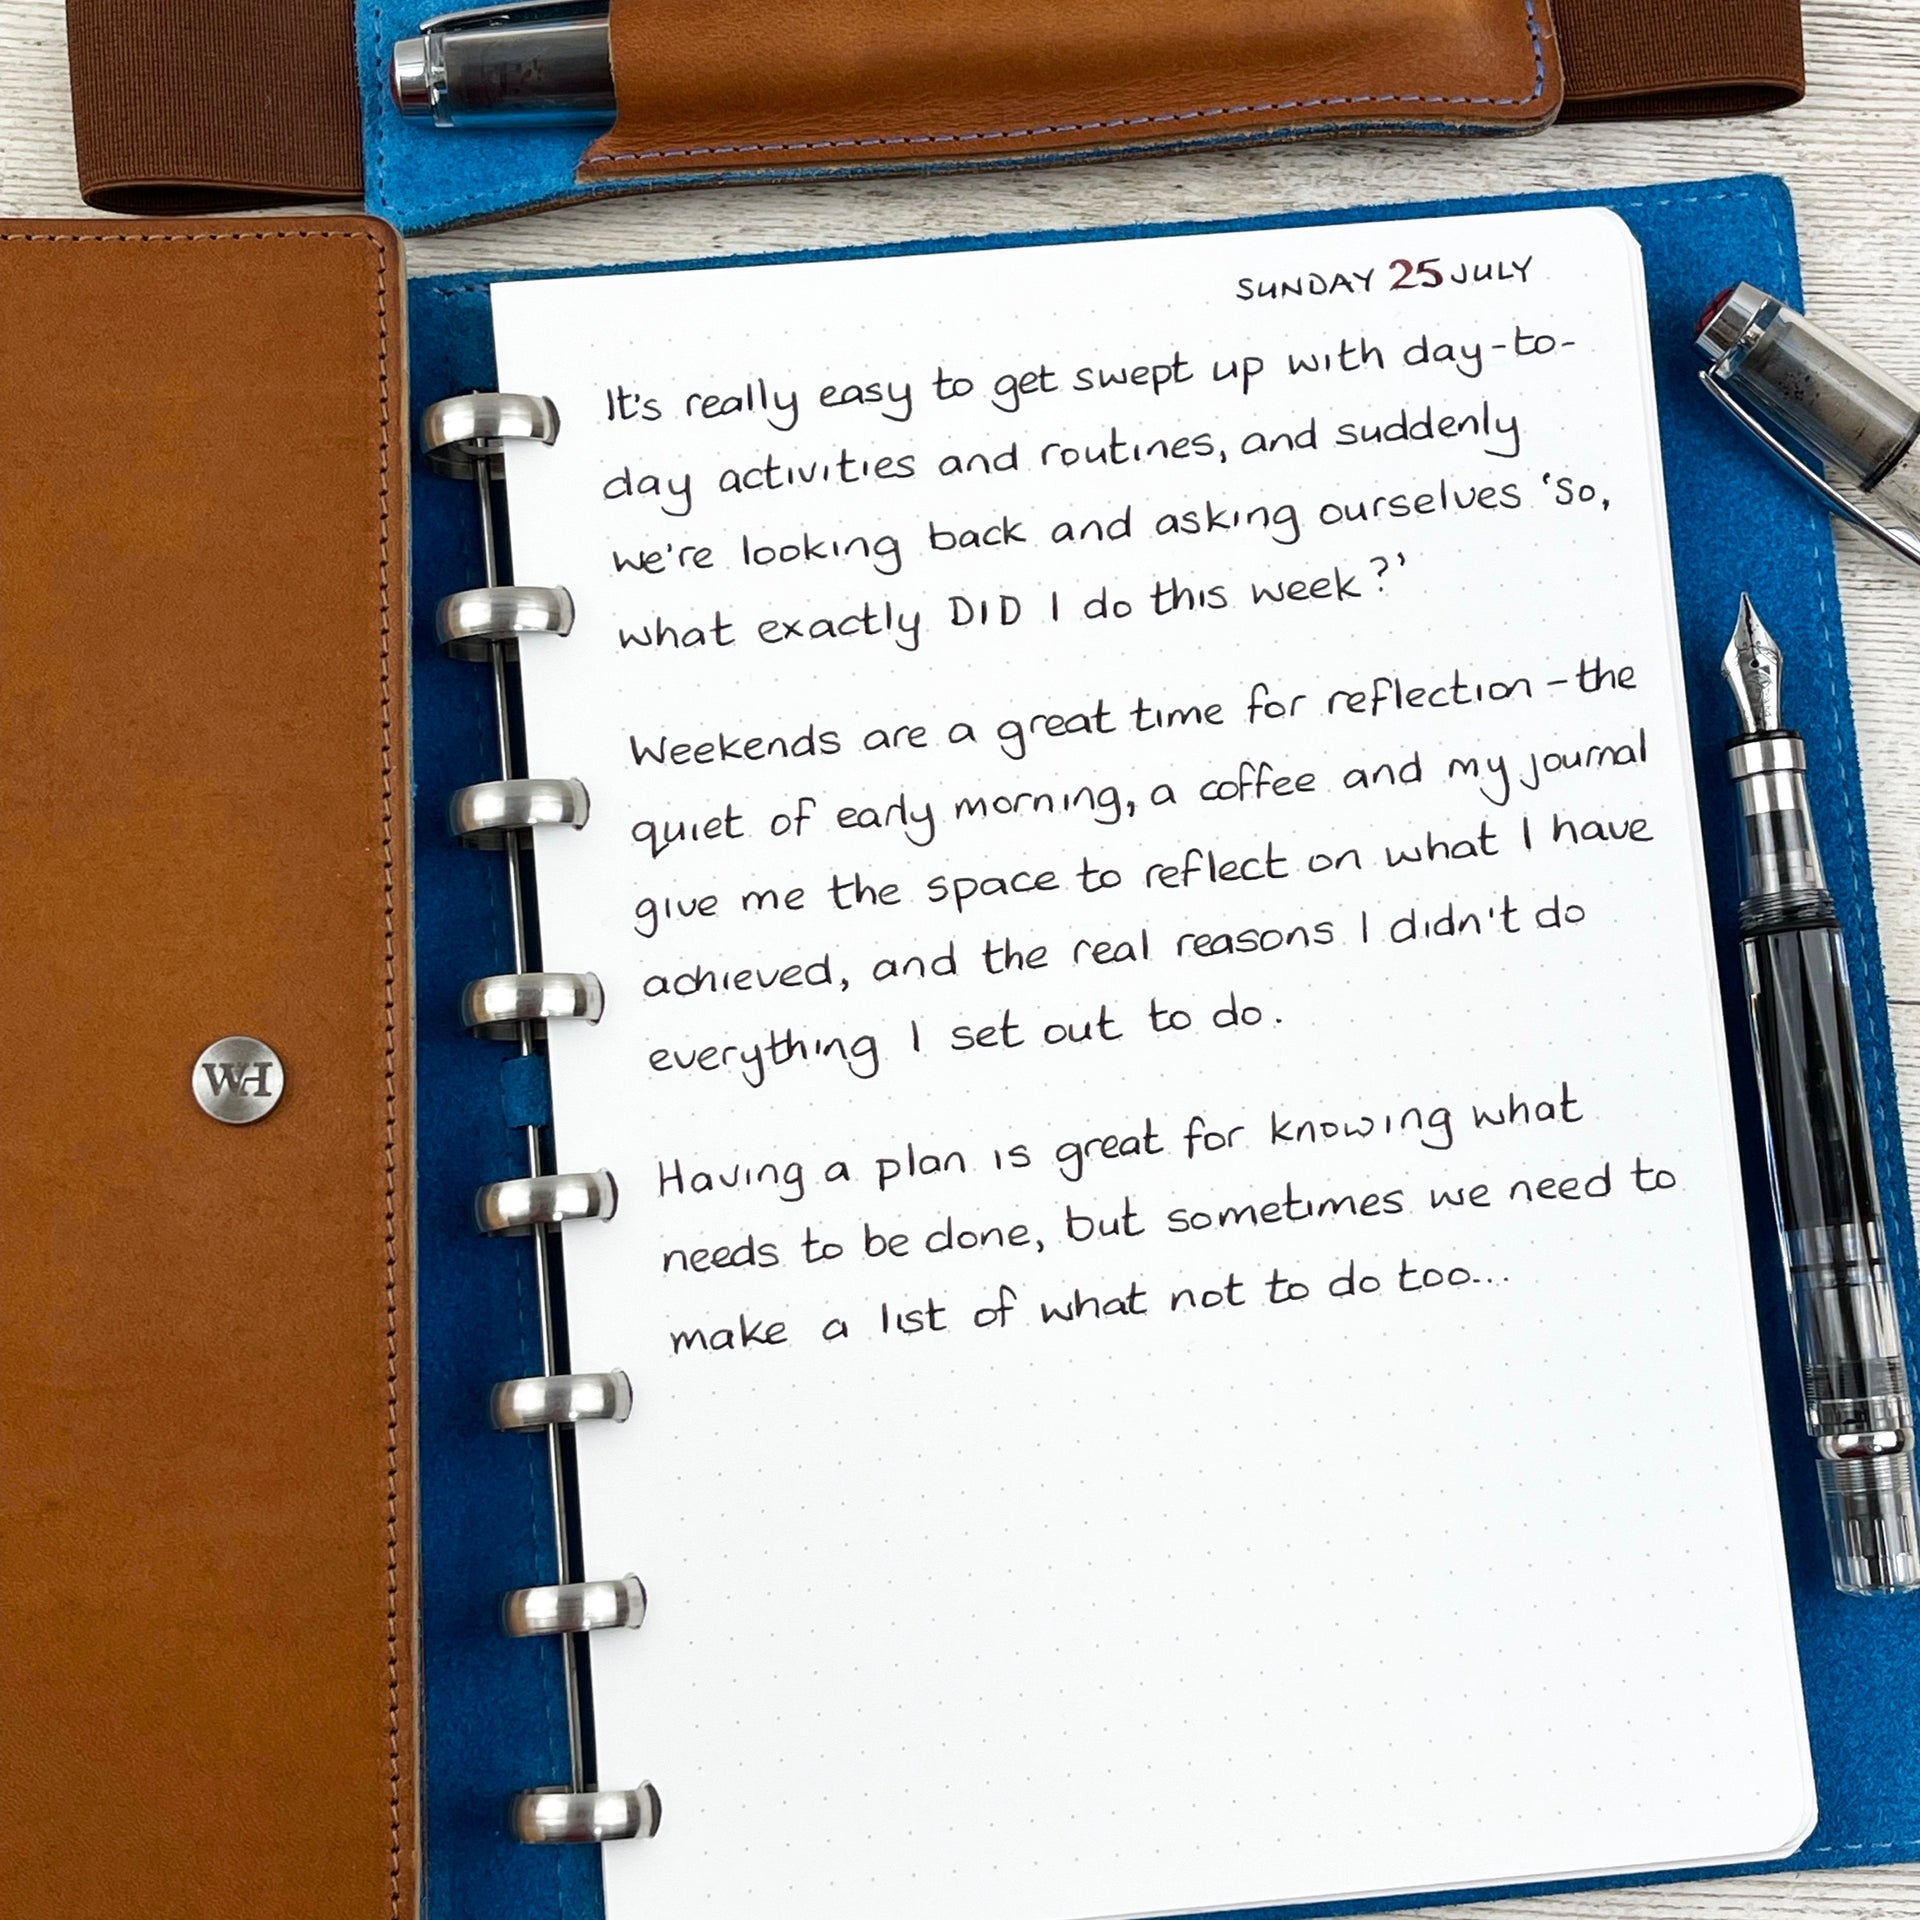 SUNDAY 25 JULY
It's really easy to get swept up with day-to-
day activities and routines, and suddenly
we're looking back and asking ourselves 'So,
what exactly DID I do this week?'
Weekends are a great time for reflection - the
quiet of early morning, a coffee and my journal
give me the space to reflect on what I have
achieved, and the real reasons I didn't do
everything I set out to do.
Having a plan is great for knowing what
needs to be done, but sometimes we need to
make a list of what not to do too...
WH